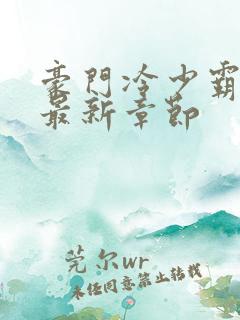 豪門冷少霸
最新章節
莞尔wr
未经同意禁止转载